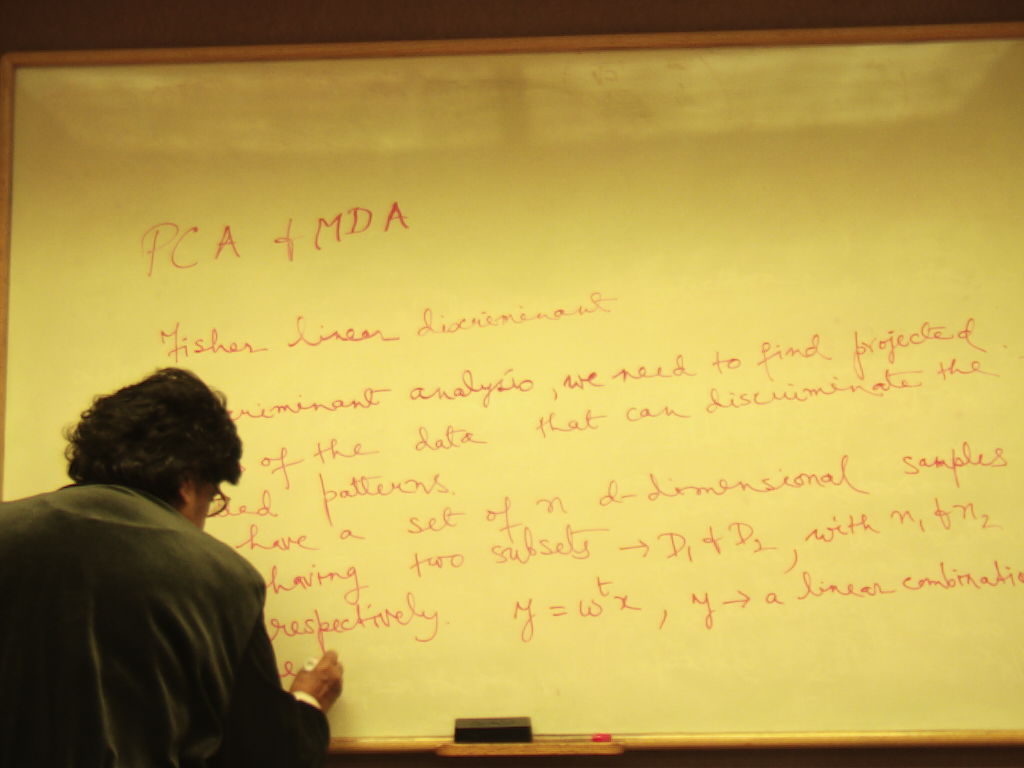 PCA & MDA
Fisher linear discriminant
criminant analysis, we need to find projected
of the data that can discriminate the
patterns.
have a set of n d-dimensional samples
having two subsets → D₁ & D₂, with n₁ & n₂
respectively. y = wᵗx, y → a linear combinatio